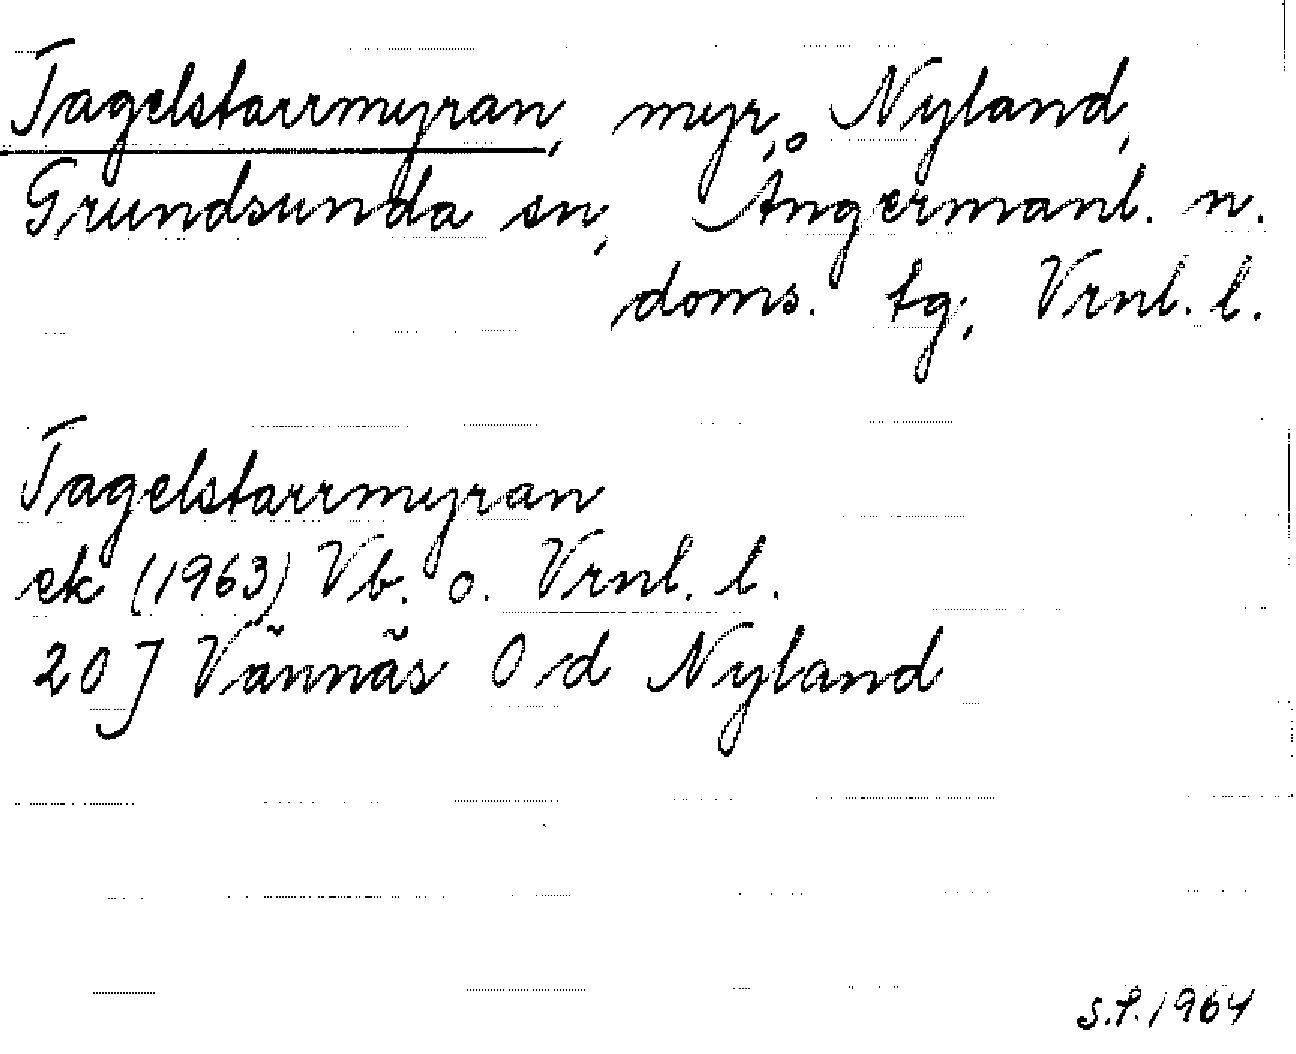 Tagelstarrmyran, myr, Nyland,
Grundsunda sn, Ångermanl. n.
doms. tg, Vrnl. l.
Tagelstarrmyran
ek (1963) Vb. o. Vrnl. l.
20 J Vännäs 0 d Nyland
S.P. 1964